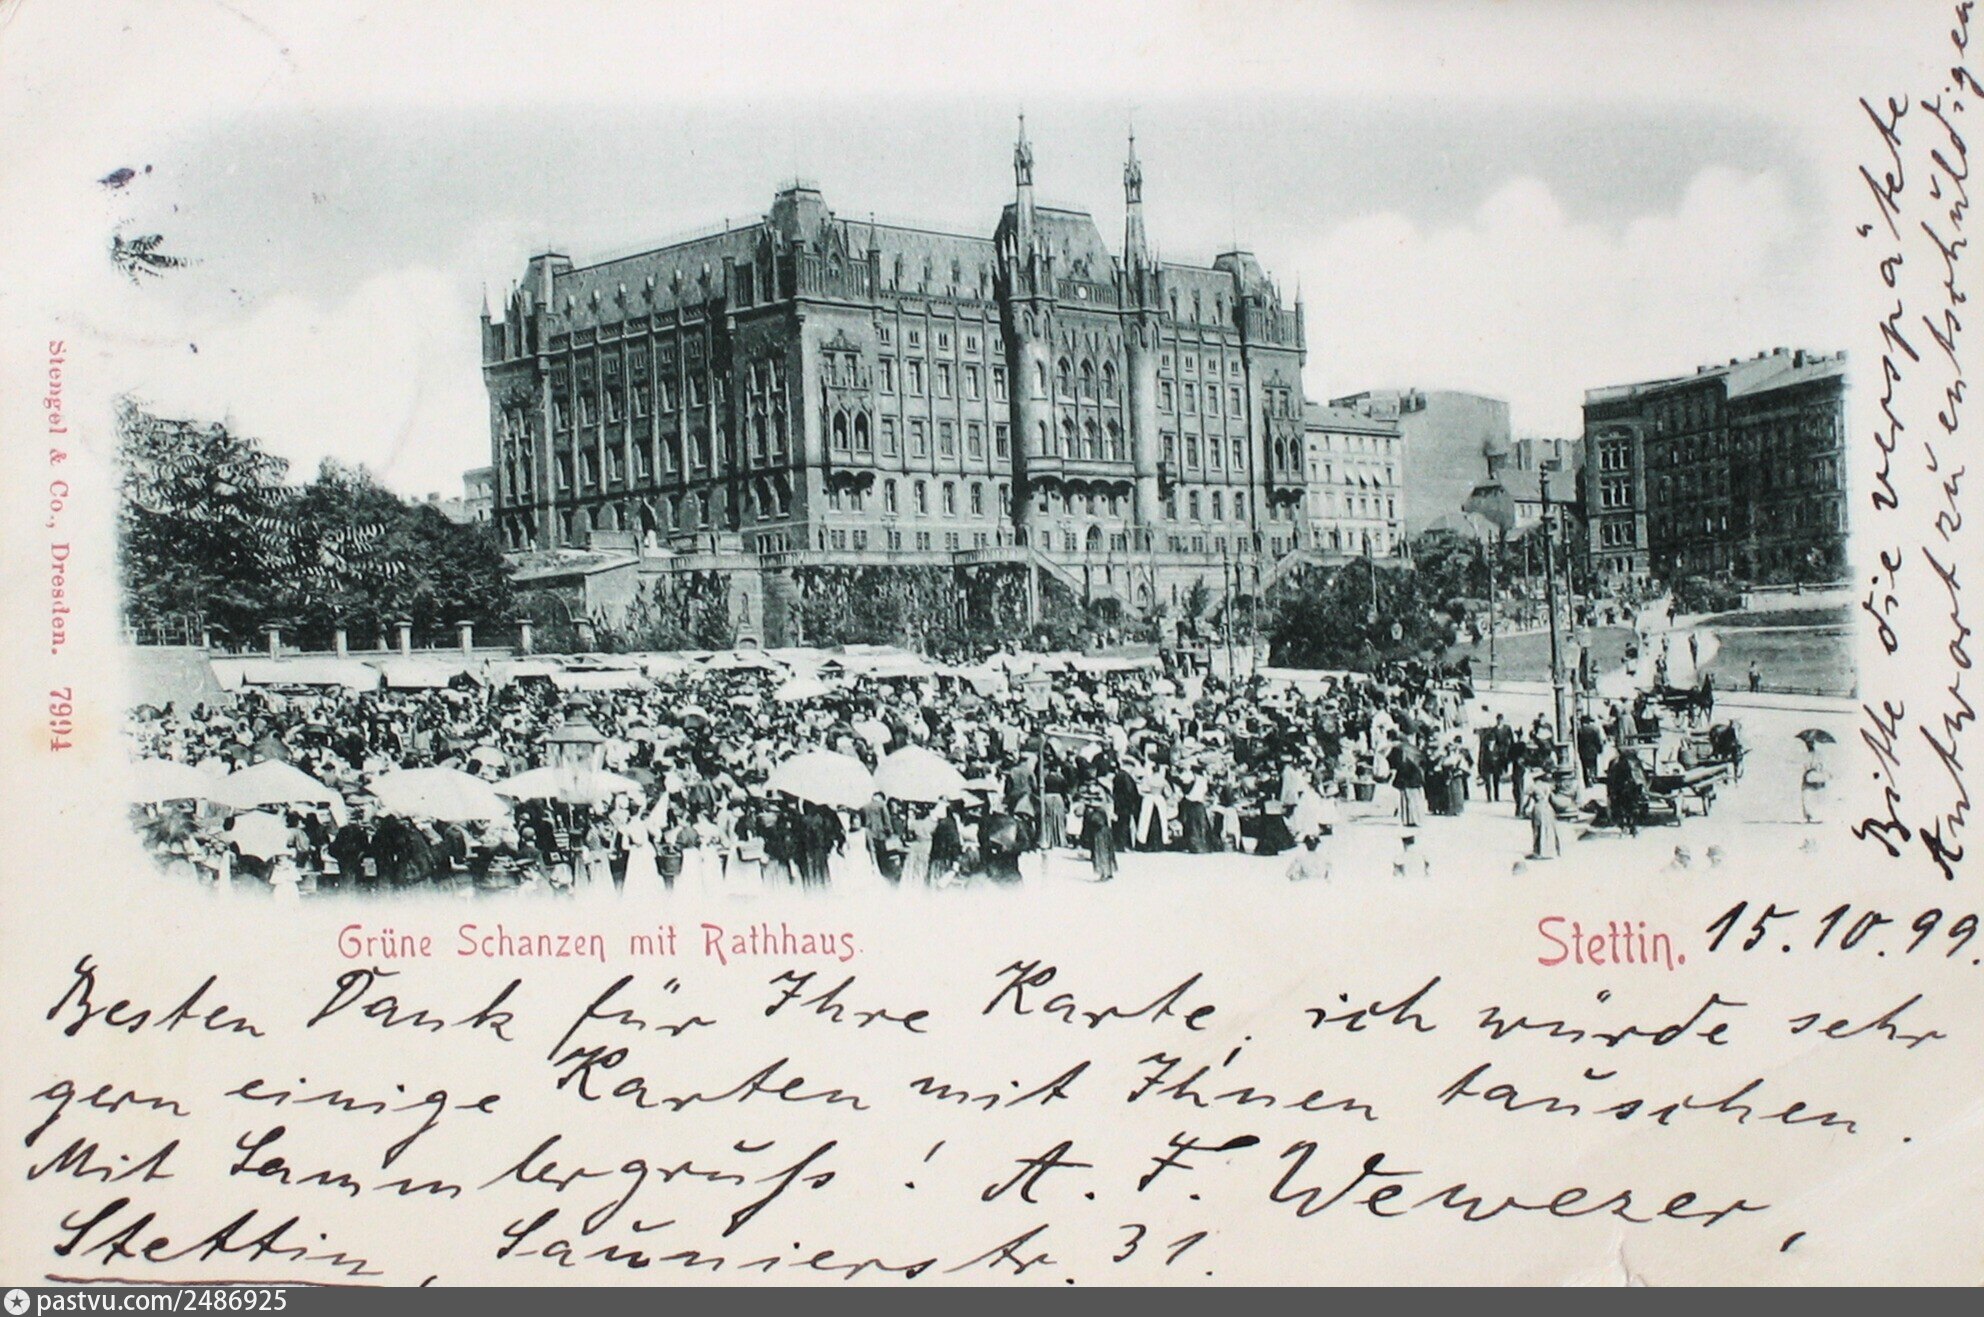 Stengel & Co., Dresden. 7994
Grüne Schanzen mit Rathhaus.
Stettin. 15.10.99.
Besten Dank für Ihre Karte, ich würde sehr
gern einige Karten mit Ihnen tauschen.
Mit Sammlergruß! A. F. Wewezer,
Stettin, Saunierstr. 31.
Bitte die verspätete
Antwort zu entschuldigen
pastvu.com/2486925